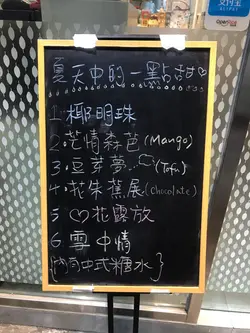 支付宝
ALIPAY
夏天中的一點甜♡
1. 椰明珠
2. 芒情森芭 (Mango)
3. 豆芽夢 (Tofu)
4. 花朱蕉展 (Chocolate)
5 ♡花露放
6. 雪中情
{港式中式糖水}